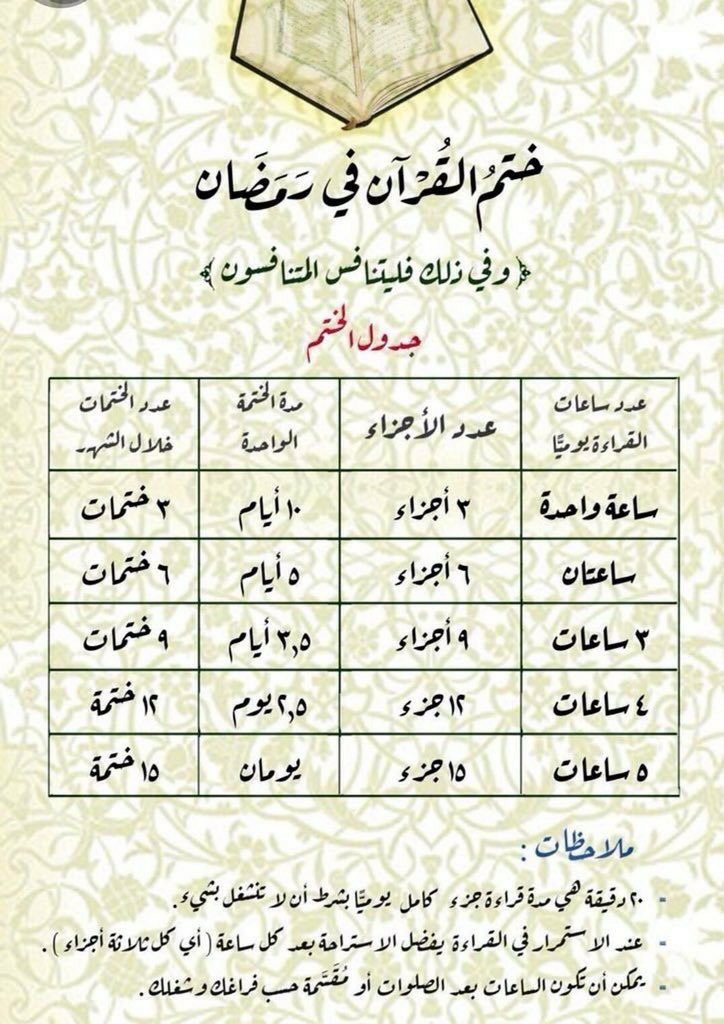 ختمُ القُرْآن في رَمَضَان
﴿ وفي ذلك فليتنافس المتنافسون ﴾
جدول الختم
عدد ساعات القراءة يوميًّا | عدد الأجزاء | مدة الختمة الواحدة | عدد الختمات خلال الشهر
ساعة واحدة | ٣ أجزاء | ١٠ أيام | ٣ ختمات
ساعتان | ٦ أجزاء | ٥ أيام | ٦ ختمات
٣ ساعات | ٩ أجزاء | ٣,٥ أيام | ٩ ختمات
٤ ساعات | ١٢ جزء | ٢,٥ يوم | ١٢ ختمة
٥ ساعات | ١٥ جزء | يومان | ١٥ ختمة
ملاحظات :
- ٢٠ دقيقة هي مدة قراءة جزء كامل يوميًّا بشرط أن لا تنشغل بشيء .
- عند الاستمرار في القراءة يفضل الاستراحة بعد كل ساعة ( أي كل ثلاثة أجزاء ) .
- يمكن أن تكون الساعات بعد الصلوات أو مُقَسَّمة حسب فراغك وشغلك .